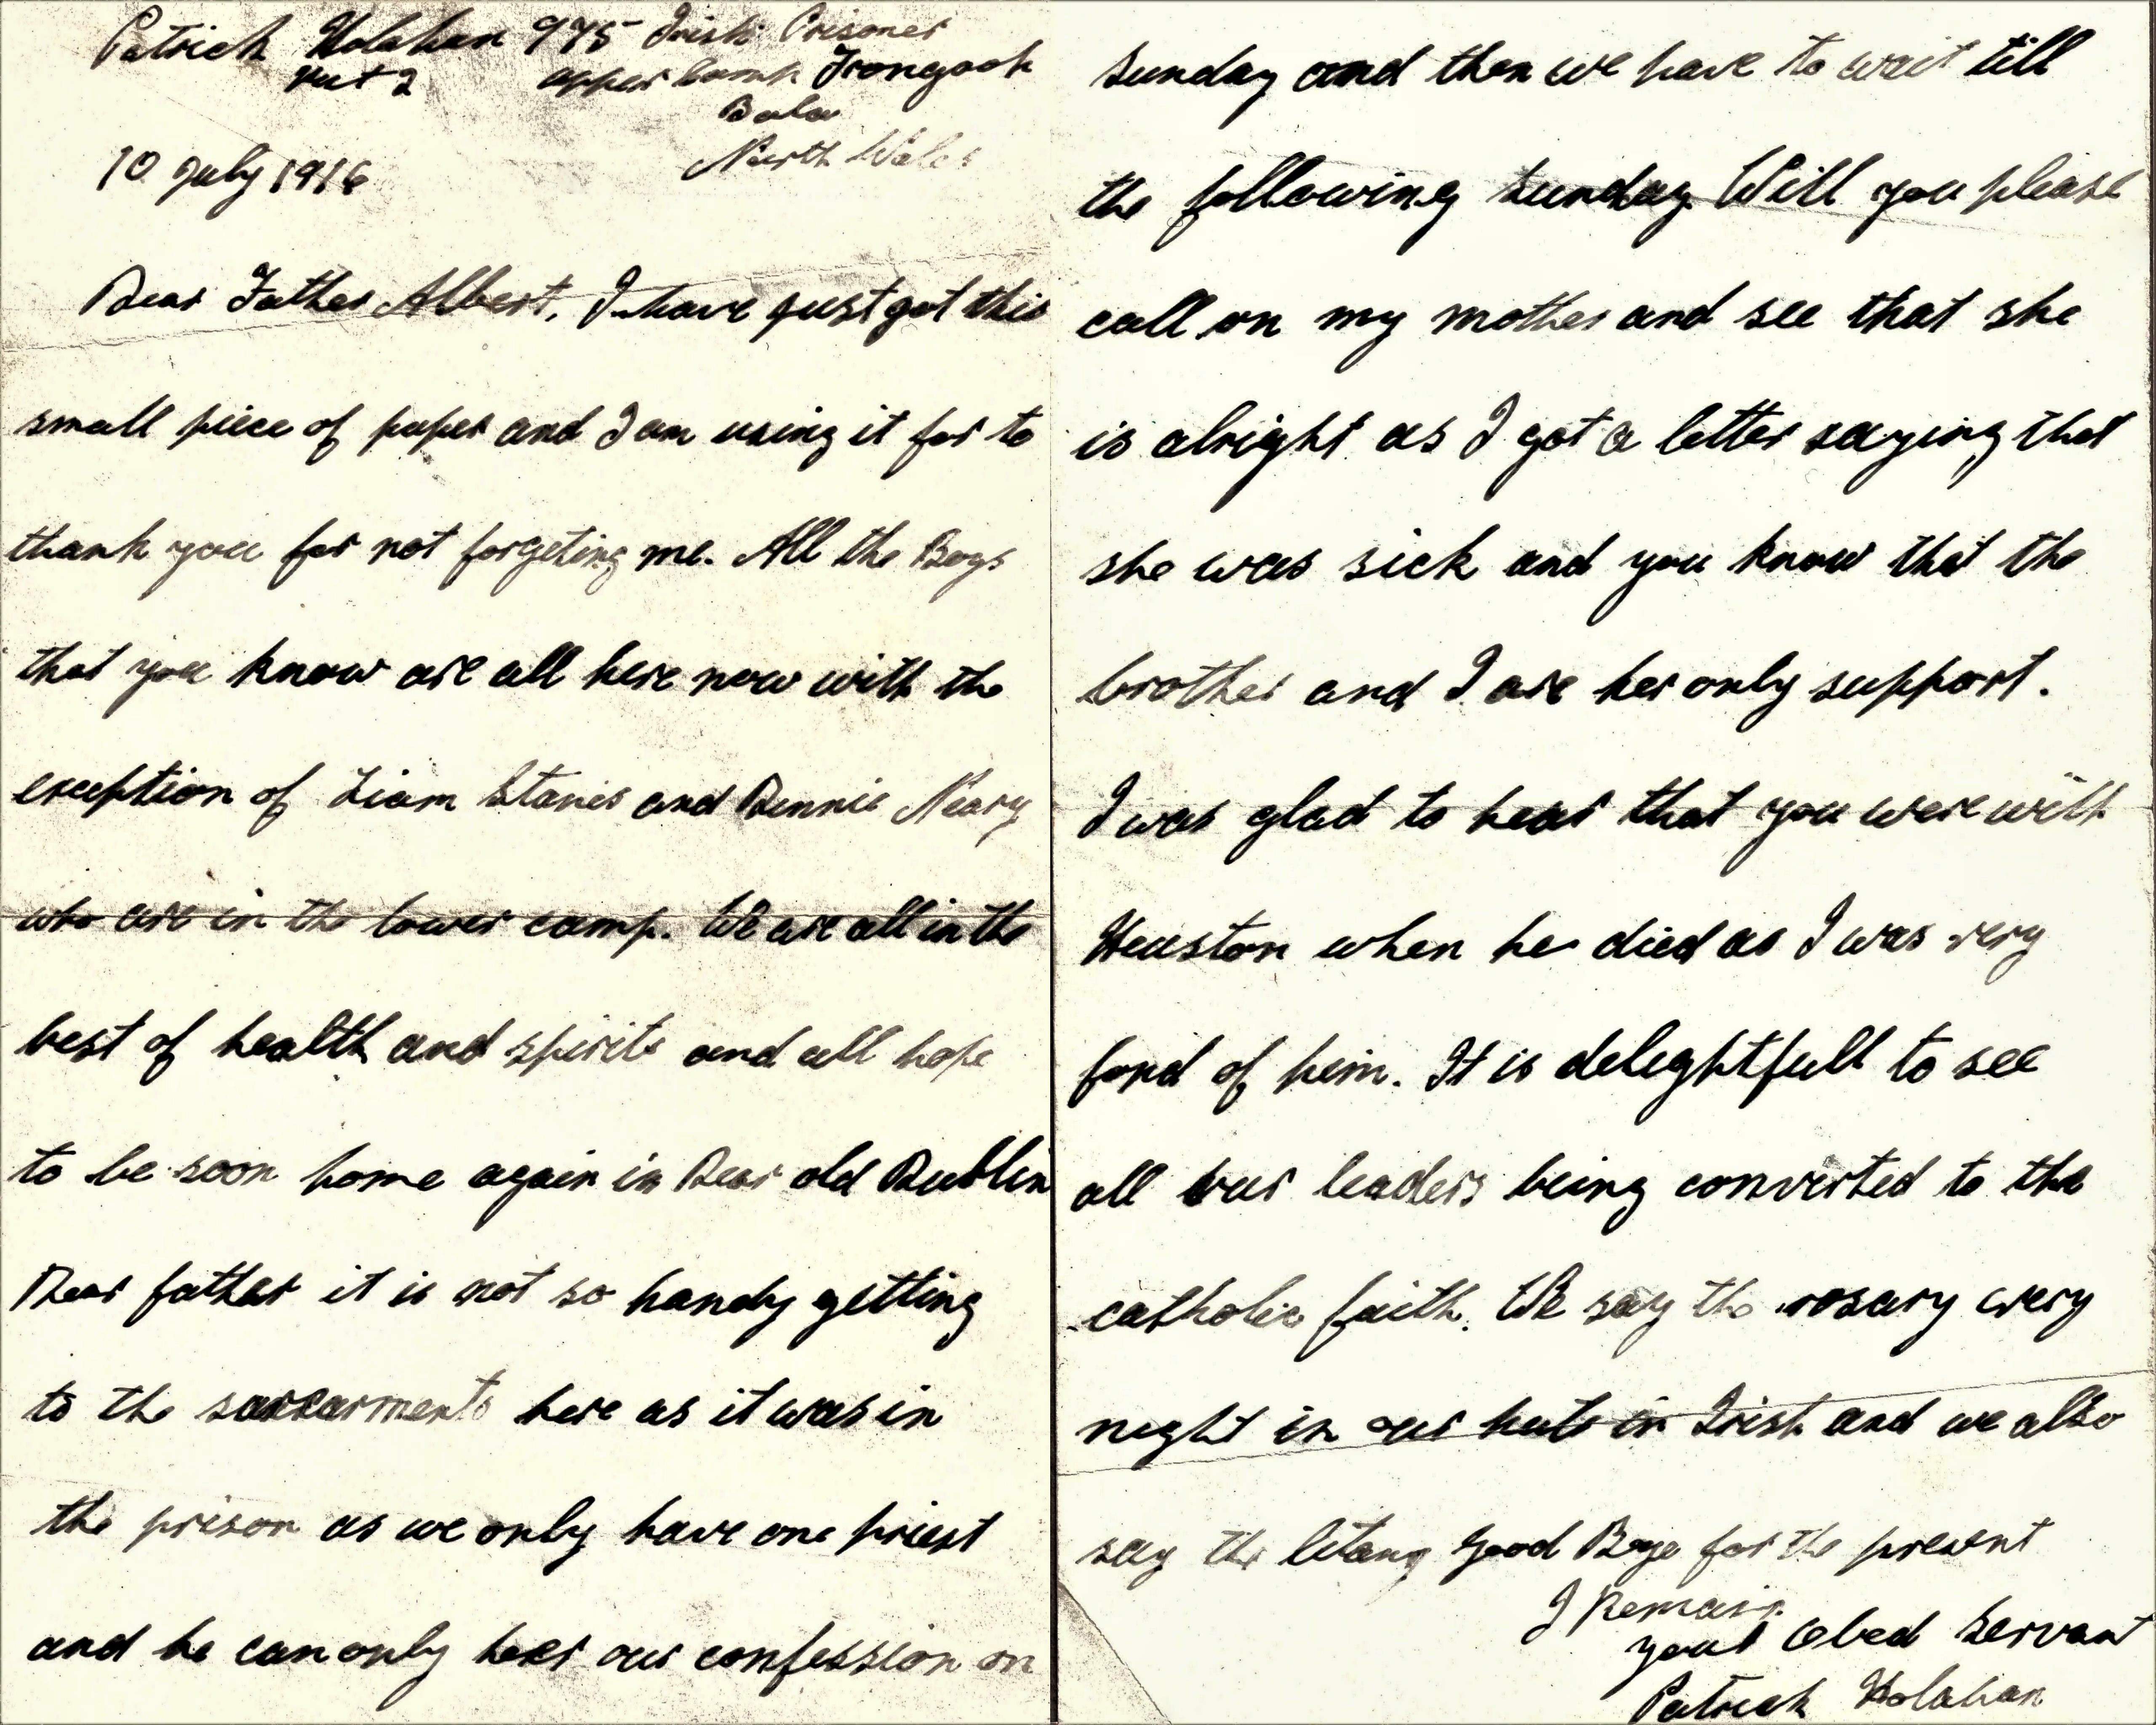 Patrick Holahan 975 Irish Prisoner
Hut 2 upper camp Frongoch
Bala
North Wales
10 July 1916
Dear Father Albert, I have just got this
small piece of paper and I am using it for to
thank you for not forgeting me. All the Boys
that you know are all here now with the
exception of Liam Staines and Dennie Neary
who are in the lower camp. We are all in the
best of health and spirits and all hope
to be soon home again in Dear old Dublin
Dear father it is not so handy getting
to the sacrarments here as it was in
the prison as we only have one priest
and he can only hear our confession on
sunday and then we have to wait till
the following sunday. Will you please
call on my mother and see that she
is alright as I got a letter saying that
she was sick and you know that the
brother and I are her only support.
I was glad to hear that you were with
Heuston when he died as I was very
fond of him. It is delightfull to see
all our leaders being converted to the
catholic faith. We say the rosary every
night in our huts in Irish and we also
say the litany Good Bye for the present
I Remain
your Obed servant
Patrick Holahan